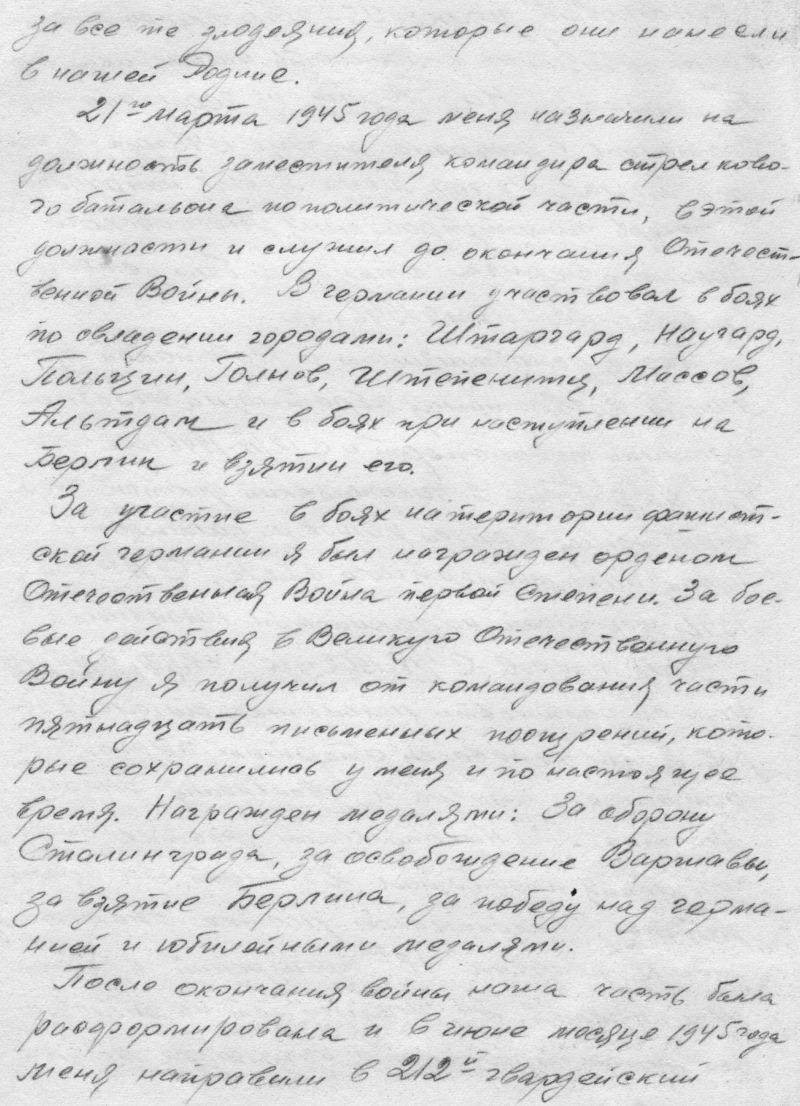 за все те злодеяния, которые они нанесли
в нашей Родине.
21го марта 1945 года меня назначили на
должность заместителя командира стрелково-
го батальона по политической части, в этой
должности и служил до окончания Отечест-
венной Войны. В германии участвовал в боях
по овладении городами: Штаргард, Наугард,
Польцин, Голнов, Штепенитц, Массов,
Альтдам и в боях при наступлении на
Берлин и взятии его.
За участие в боях на територии фашист-
ской германии я был награжден орденом
Отечественная Война первой степени. За бое-
вые действия в Великую Отечественную
Войну я получил от командования части
пятнадцать письменных поощрений, кото-
рые сохранились у меня и по настоящее
время. Награжден медалями: За оборону
Сталинграда, за освобождение Варшавы,
за взятие Берлина, за победу над герма-
нией и юбилейными медалями.
После окончания войны наша часть была
расформирована и в июне месяце 1945 года
меня направили в 212й гвардейский